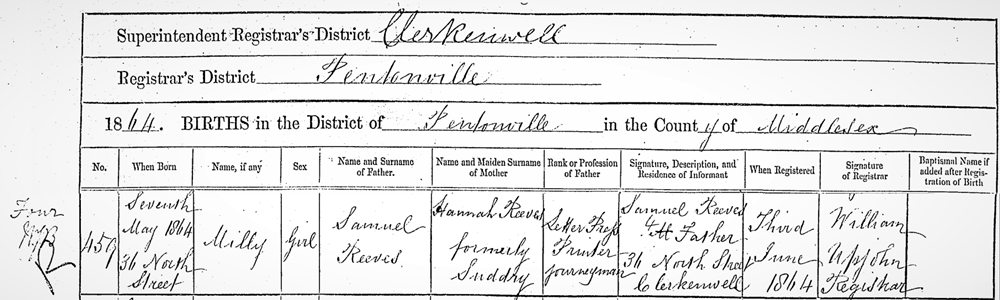 Superintendent Registrar's District Clerkenwell
Registrar's District Pentonville
1864. BIRTHS in the District of Pentonville in the County of Middlesex
No.
When Born
Name, if any
Sex
Name and Surname
of Father.
Name and Maiden Surname
of Mother
Rank or Profession
of Father
Signature, Description, and
Residence of Informant
When Registered
Signature
of Registrar
Baptismal Name if
added after Regis-
tration of Birth
Four
459
Seventh
May 1864
36 North
Street
Milly
Girl
Samuel
Reeves
Hannah Reeves
formerly
Suddry
Letter Press
Printer
journeyman
Samuel Reeves
Father
36 North Street
Clerkenwell
Third
June
1864
William
Upjohn
Registrar